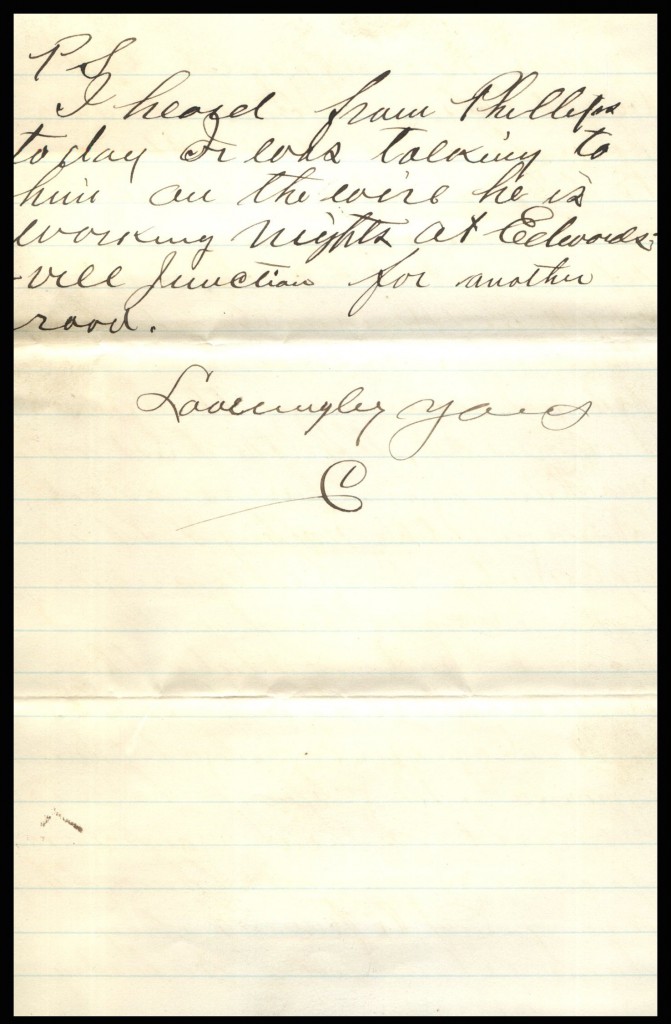 P S
I heard from Phillips
to day I was talking to
him on the wire he is
working nights at Edwards-
vill Junction for another
road.
Loveingley yours
C